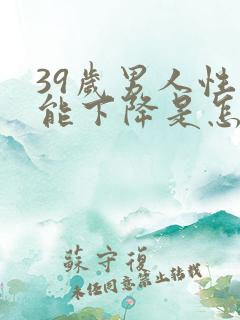 39歲男人性
能下降是怎
蘇守復
未经同意禁止转载